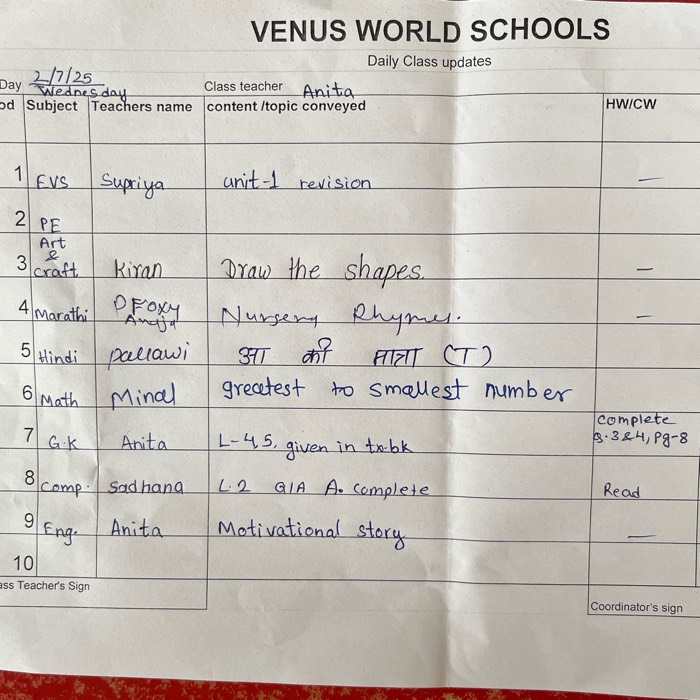 VENUS WORLD SCHOOLS
Daily Class updates
Day 2/7/25 Wednesday Class teacher Anita
od Subject Teachers name content /topic conveyed HW/CW
1 EVS Supriya unit-1 revision —
2 PE
3 Art & craft Kiran Draw the shapes. —
4 Marathi Proxy Nursery Rhymes. —
5 Hindi pallawi आ की मात्रा (T)
6 Math Minal greatest to smallest number
7 G.K Anita L-4,5, given in tx.bk complete Q.3&4, Pg-8
8 comp. Sadhana L.2 Q/A A. complete Read
9 Eng. Anita Motivational story —
10
ass Teacher's Sign
Coordinator's sign